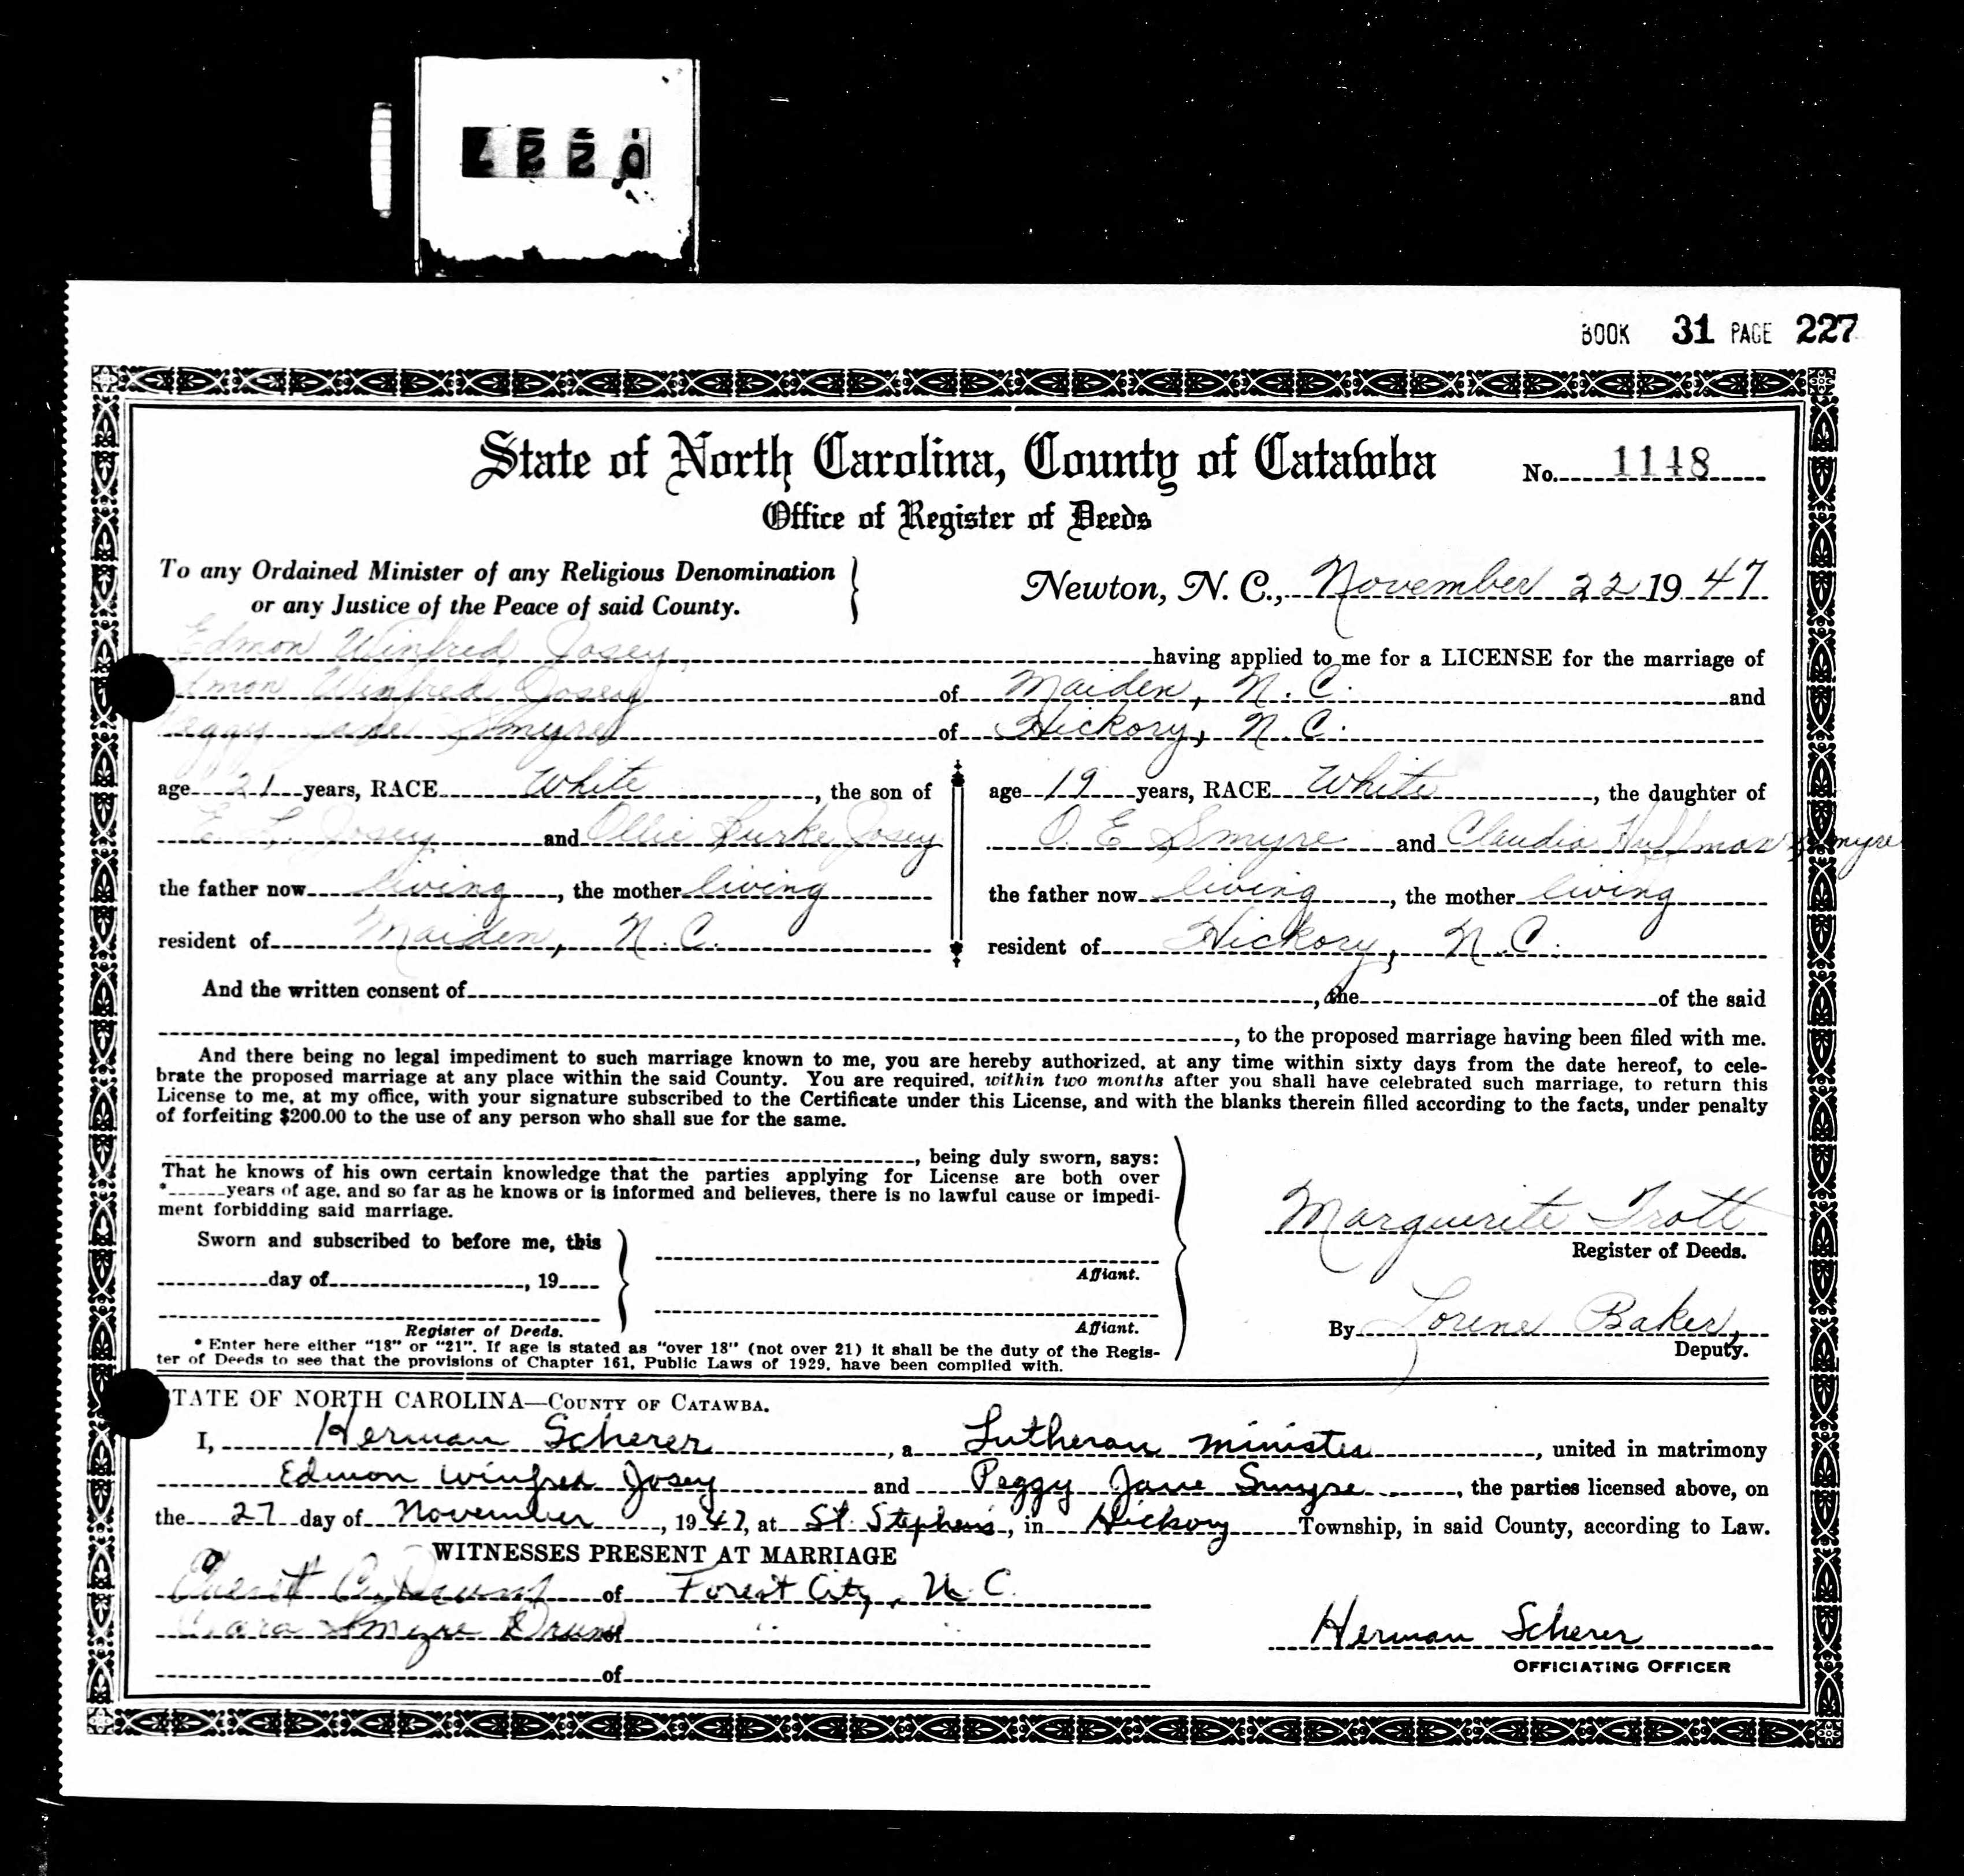 BOOK 31 PAGE 227
State of North Carolina, County of Catawba
No. 1148
Office of Register of Deeds
To any Ordained Minister of any Religious Denomination
or any Justice of the Peace of said County.
Newton, N. C., November 22 19 47
Edmon Winfred Josey having applied to me for a LICENSE for the marriage of
Edmon Winfred Josey of Maiden, N. C. and
Peggy Jane Smyre of Hickory, N. C.
age 21 years, RACE White, the son of
E. L. Josey and Ollie Burke Josey
the father now living, the mother living
resident of Maiden, N. C.
age 19 years, RACE White, the daughter of
O. E. Smyre and Claudia Huffman Smyre
the father now living, the mother living
resident of Hickory, N. C.
And the written consent of , the of the said
, to the proposed marriage having been filed with me.
And there being no legal impediment to such marriage known to me, you are hereby authorized, at any time within sixty days from the date hereof, to cele-
brate the proposed marriage at any place within the said County. You are required, within two months after you shall have celebrated such marriage, to return this
License to me, at my office, with your signature subscribed to the Certificate under this License, and with the blanks therein filled according to the facts, under penalty
of forfeiting $200.00 to the use of any person who shall sue for the same.
, being duly sworn, says:
That he knows of his own certain knowledge that the parties applying for License are both over
* years of age, and so far as he knows or is informed and believes, there is no lawful cause or impedi-
ment forbidding said marriage.
Sworn and subscribed to before me, this
day of , 19
Register of Deeds.
Affiant.
Affiant.
* Enter here either "18" or "21". If age is stated as "over 18" (not over 21) it shall be the duty of the Regis-
ter of Deeds to see that the provisions of Chapter 161, Public Laws of 1929, have been complied with.
Marguerite Trott
Register of Deeds.
By Lorene Baker,
Deputy.
STATE OF NORTH CAROLINA—COUNTY OF CATAWBA.
I, Herman Scherer, a Lutheran minister, united in matrimony
Edmon Winfred Josey and Peggy Jane Smyre, the parties licensed above, on
the 27 day of November, 1947, at St. Stephen's, in Hickory Township, in said County, according to Law.
WITNESSES PRESENT AT MARRIAGE
C. Drum of Forest City, N. C.
Smyre Drum of " "
of
Herman Scherer
OFFICIATING OFFICER